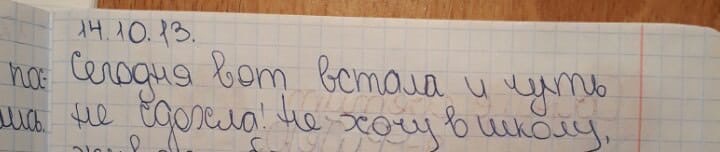 14.10.13.
па-
Сегодня вот встала и чуть
не сдохла! Не хочу в школу,